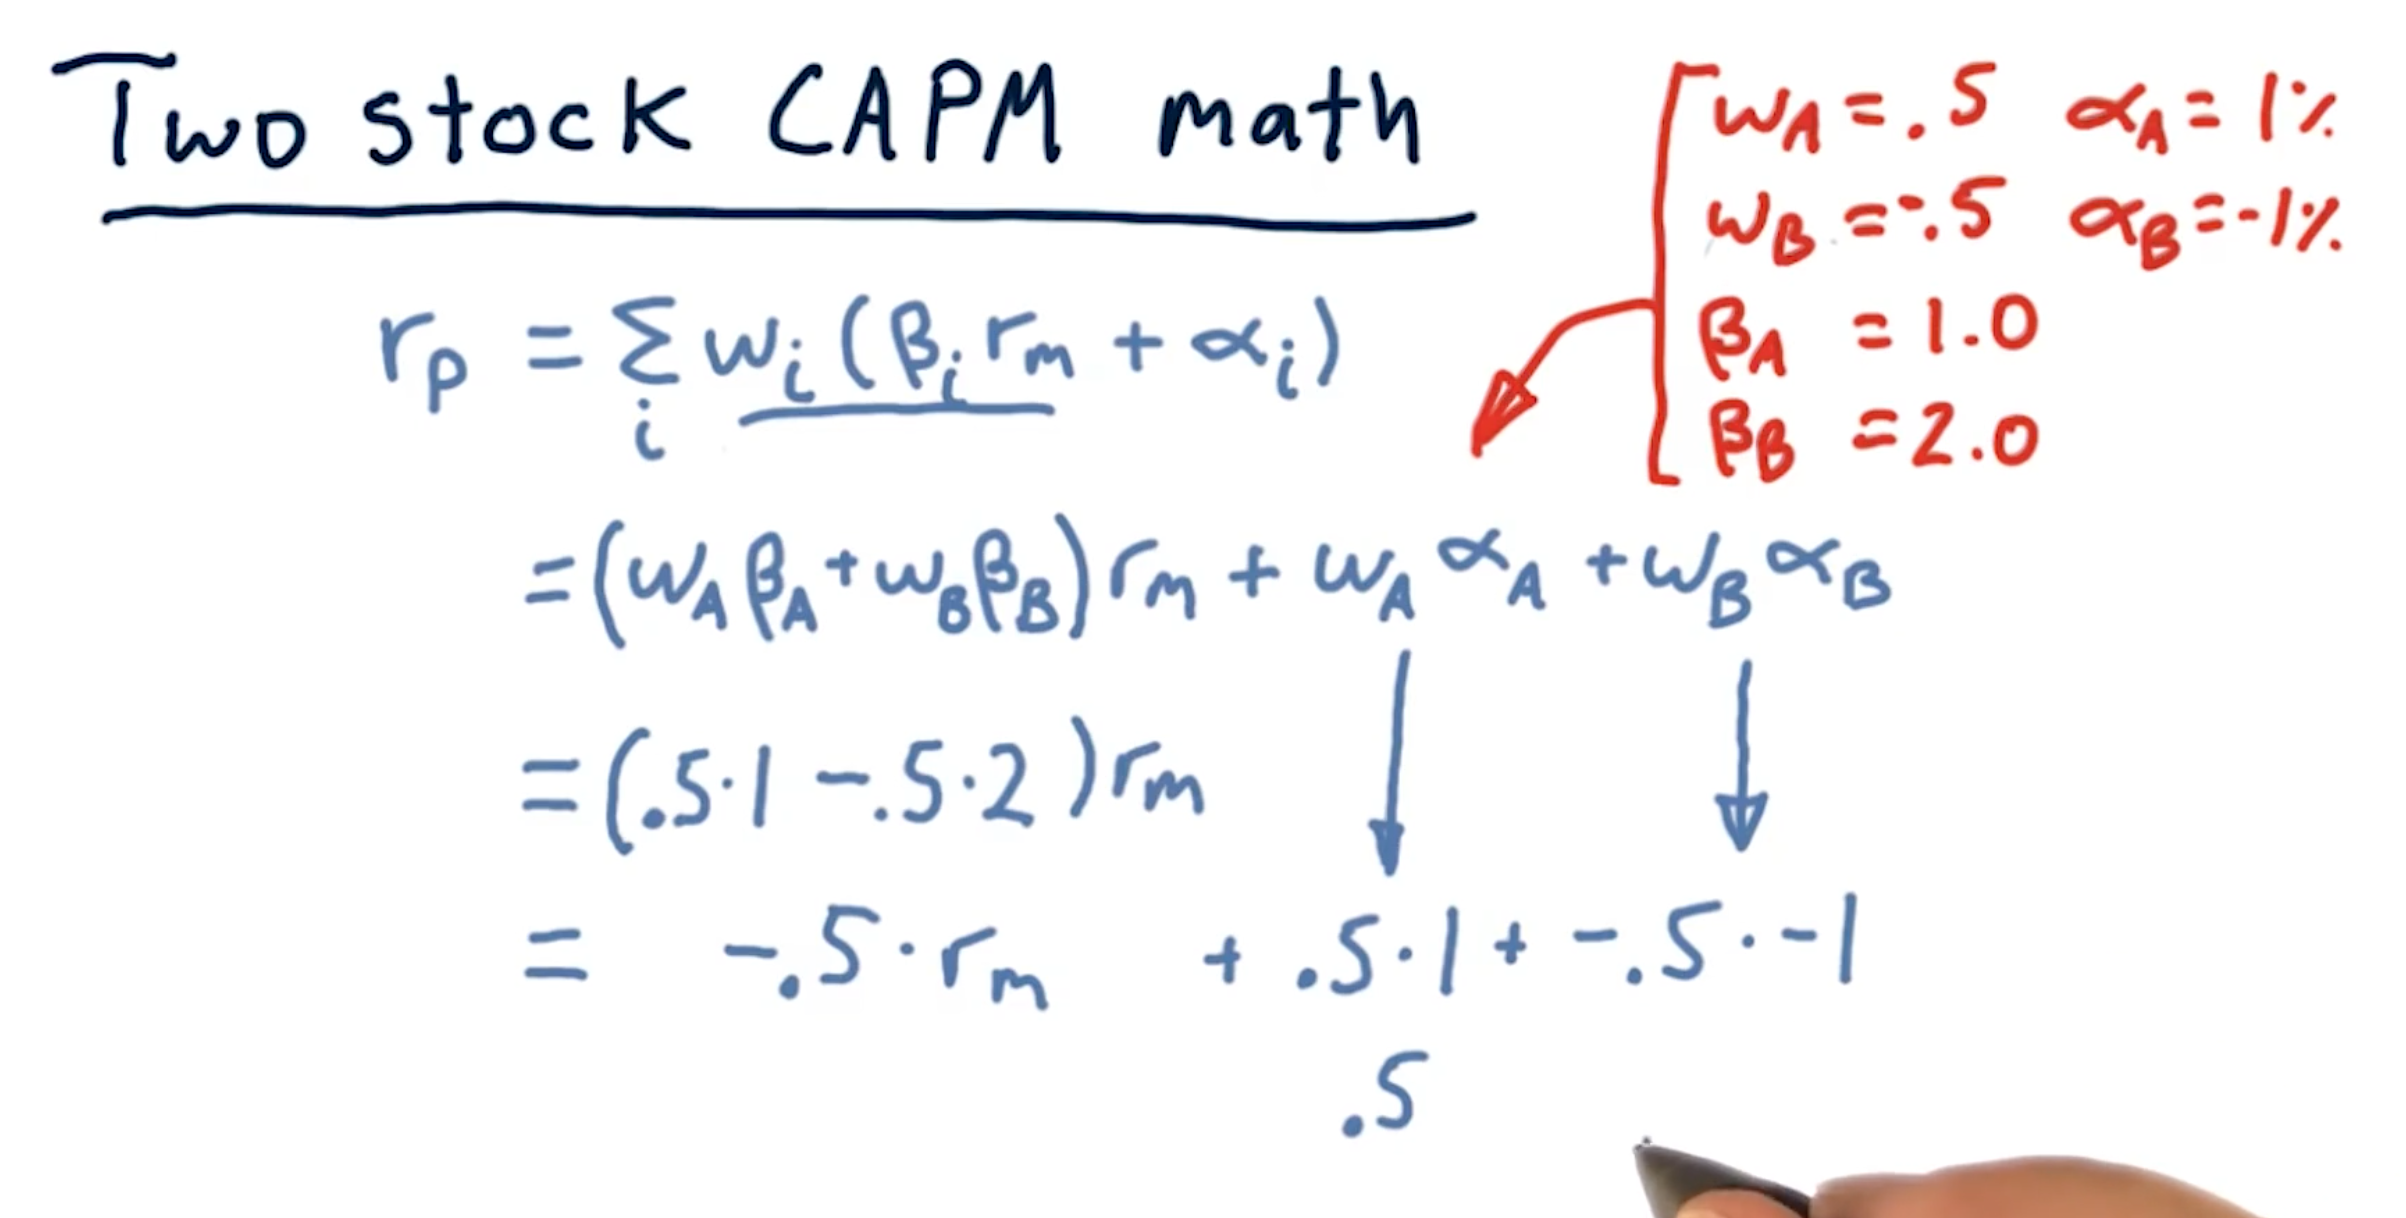 Two stock CAPM math
wA = .5 αA = 1%
wB = -.5 αB = -1%
βA = 1.0
βB = 2.0
rp = Σi wi (βi rm + αi)
= (wA βA + wB βB) rm + wA αA + wB αB
= (.5·1 - .5·2) rm
= -.5·rm + .5·1 + -.5·-1
.5